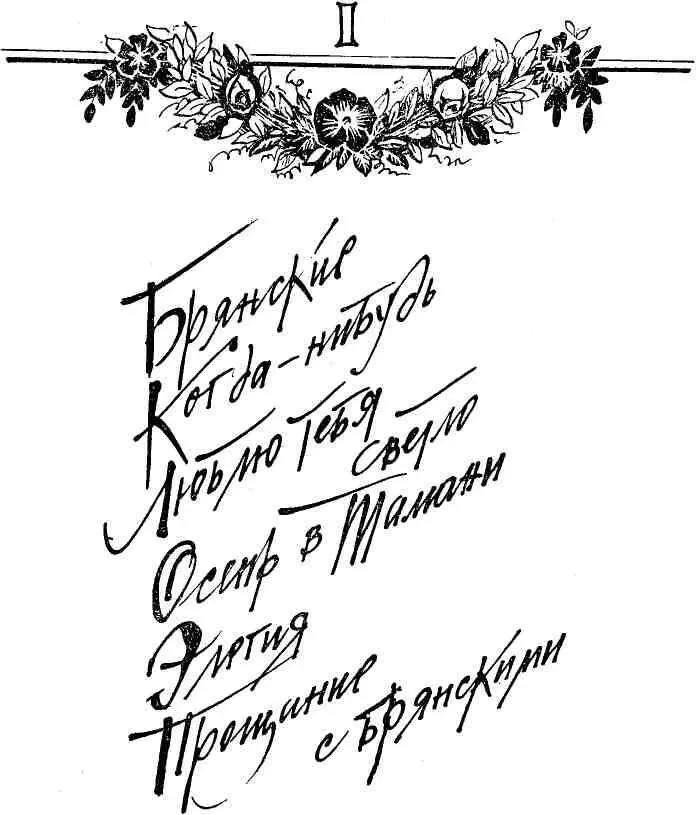 I
Брянские
Когда-нибудь
Люблю тебя
светло
Осень в Тамани
Элегия
Прощание
с Брянскими